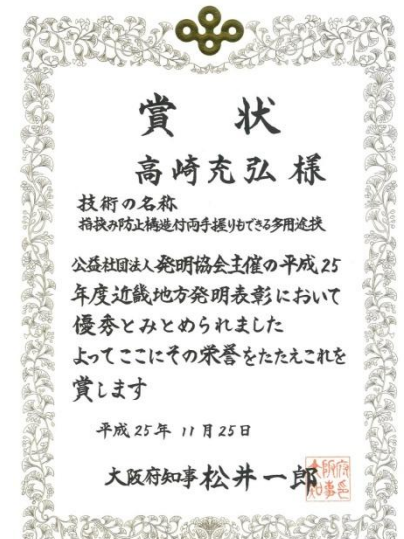 賞状
高崎充弘 様
技術の名称
指挟み防止構造付両手握りもできる多用途鋏
公益社団法人発明協会主催の平成25
年度近畿地方発明表彰において
優秀とみとめられました
よってここにその栄誉をたたえこれを
賞します
平成25年 11月25日
大阪府知事 松井一郎
大阪府
知事之印